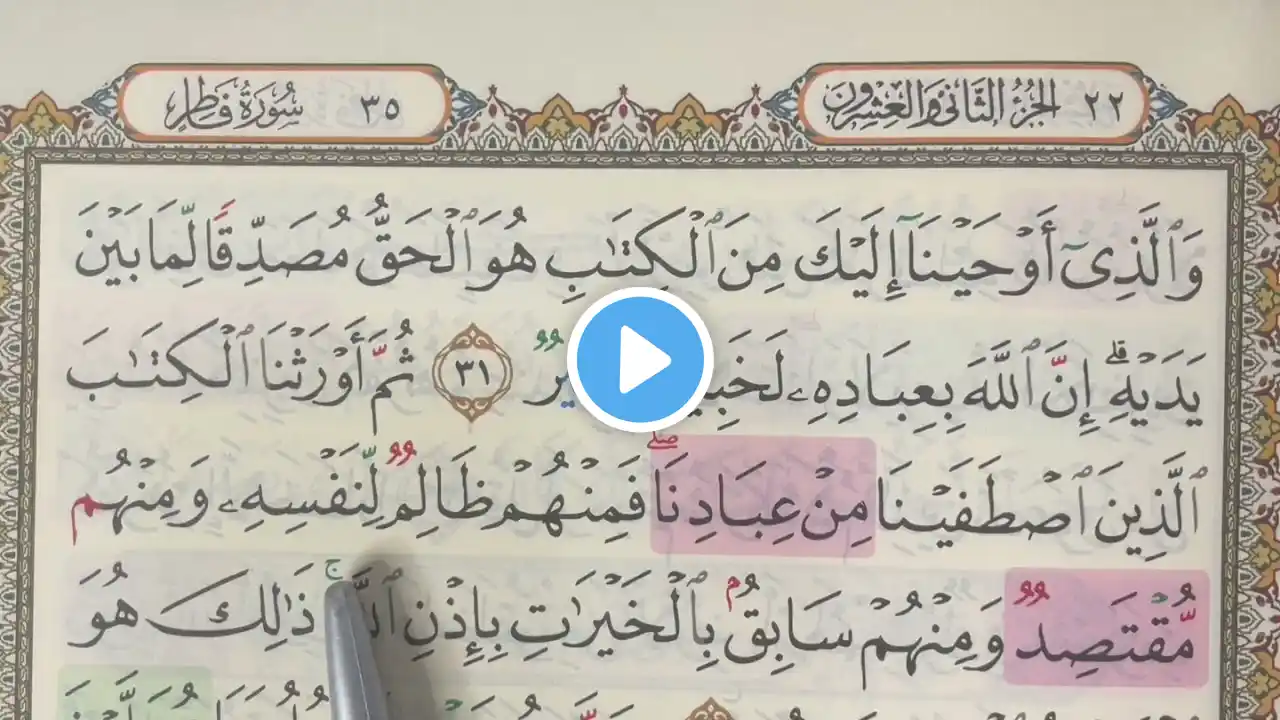 ٢٢ الجزء الثاني والعشرون
٣٥ سورة فاطر
وَٱلَّذِىٓ أَوْحَيْنَآ إِلَيْكَ مِنَ ٱلْكِتَٰبِ هُوَ ٱلْحَقُّ مُصَدِّقًا لِّمَا بَيْنَ
يَدَيْهِ ۗ إِنَّ ٱللَّهَ بِعِبَادِهِۦ ٣١ ثُمَّ أَوْرَثْنَا ٱلْكِتَٰبَ
ٱلَّذِينَ ٱصْطَفَيْنَا مِنْ عِبَادِنَا ۖ فَمِنْهُمْ ظَالِمٌ لِّنَفْسِهِۦ وَمِنْهُم
مُّقْتَصِدٌ وَمِنْهُمْ سَابِقٌۢ بِٱلْخَيْرَٰتِ بِإِذْنِ ۚ ذَٰلِكَ هُوَ